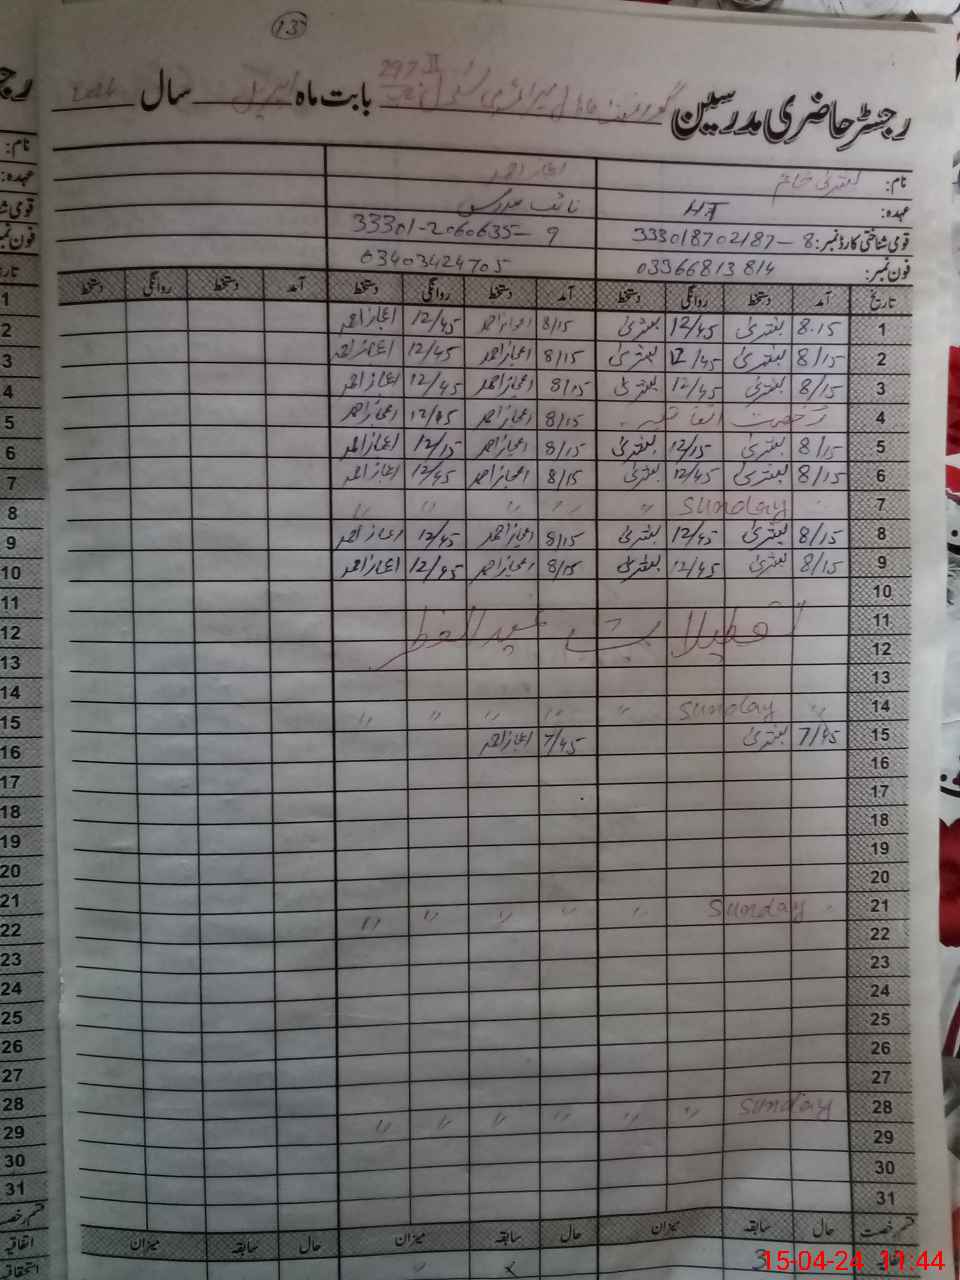 13
رجسٹر حاضری مدرسین بابت ماہ اپریل سال
297 II
نام: بشریٰ خانم اعجاز احمد
عہدہ: HT نائب مدرس
قومی شناختی کارڈ نمبر: 333018702187-8 33301-2060635-9
فون نمبر: 03366813814 03403424705
تاریخ آمد دستخط روانگی دستخط آمد دستخط روانگی دستخط آمد دستخط روانگی دستخط
1 8.15 بشریٰ 12/45 بشریٰ 8/15 اعجاز احمد 12/45 اعجاز احمد
2 8/15 بشریٰ 12/45 بشریٰ 8/15 اعجاز احمد 12/45 اعجاز احمد
3 8/15 بشریٰ 12/45 بشریٰ 8/15 اعجاز احمد 12/45 اعجاز احمد
4 رخصت اتفاقیہ 8/15 اعجاز احمد 12/45 اعجاز احمد
5 8/15 بشریٰ 12/15 بشریٰ 8/15 اعجاز احمد 12/15 اعجاز احمد
6 8/15 بشریٰ 12/45 بشریٰ 8/15 اعجاز احمد 12/45 اعجاز احمد
7 Sunday " " " " "
8 8/15 بشریٰ 12/45 بشریٰ 8/15 اعجاز احمد 12/45 اعجاز احمد
9 8/15 بشریٰ 12/45 بشریٰ 8/15 اعجاز احمد 12/45 اعجاز احمد
10
11 تعطیلات عید الفطر
12
13
14 " Sunday " " " " "
15 7/45 بشریٰ 7/45 اعجاز احمد
16
17
18
19
20
21 Sunday " " " " "
22
23
24
25
26
27
28 Sunday " " " " " "
29
30
31
قسم رخصت حال سابقہ میزان حال سابقہ میزان حال سابقہ میزان
3
15-04-24 11:44